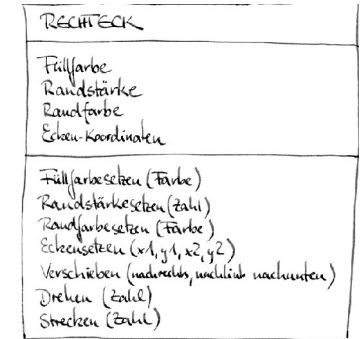 RECHTECK
Füllfarbe
Randstärke
Randfarbe
Ecken-Koordinaten
Füllfarbesetzen (Farbe)
Randstärkesetzen (Zahl)
Randfarbesetzen (Farbe)
Eckensetzen (x1, y1, x2, y2)
Verschieben (nachrechts, nachlinks nachunten)
Drehen (Zahl)
Strecken (Zahl)